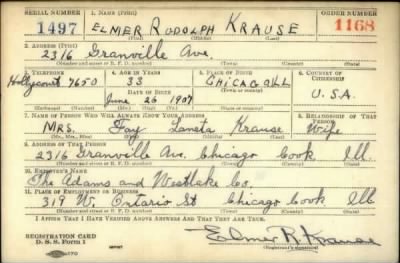 SERIAL NUMBER 1. NAME (Print) ORDER NUMBER
1497 ELMER RUDOLPH KRAUSE 1168
(First) (Middle) (Last)
2. ADDRESS (Print)
2316 Granville Ave.
(Number and street or R. F. D. number) (Town) (County) (State)
3. TELEPHONE 4. AGE IN YEARS 5. PLACE OF BIRTH 6. COUNTRY OF CITIZENSHIP
Hollycourt 7650 33 CHICAGO
DATE OF BIRTH (Town or county)
June 26 1907 ILL U.S.A.
(Mo.) (Day) (Yr.) (State or country)
7. NAME OF PERSON WHO WILL ALWAYS KNOW YOUR ADDRESS 8. RELATIONSHIP OF THAT PERSON
MRS. Fay Krause Wife
(Mr., Mrs., Miss) (First) (Middle) (Last)
9. ADDRESS OF THAT PERSON
2316 Granville Ave. Chicago Cook Ill.
(Number and street or R. F. D. number) (Town) (County) (State)
10. EMPLOYER'S NAME
The Adams and Westlake Co.
11. PLACE OF EMPLOYMENT OR BUSINESS
319 W. Ontario St Chicago Cook Ill
(Number and street or R. F. D. number) (Town) (County) (State)
I AFFIRM THAT I HAVE VERIFIED ABOVE ANSWERS AND THAT THEY ARE TRUE.
REGISTRATION CARD
D. S. S. Form 1 Elmer R. Krause
(Registrant's signature)